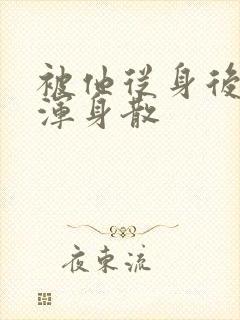 被他从身後
渾身散
夜東流